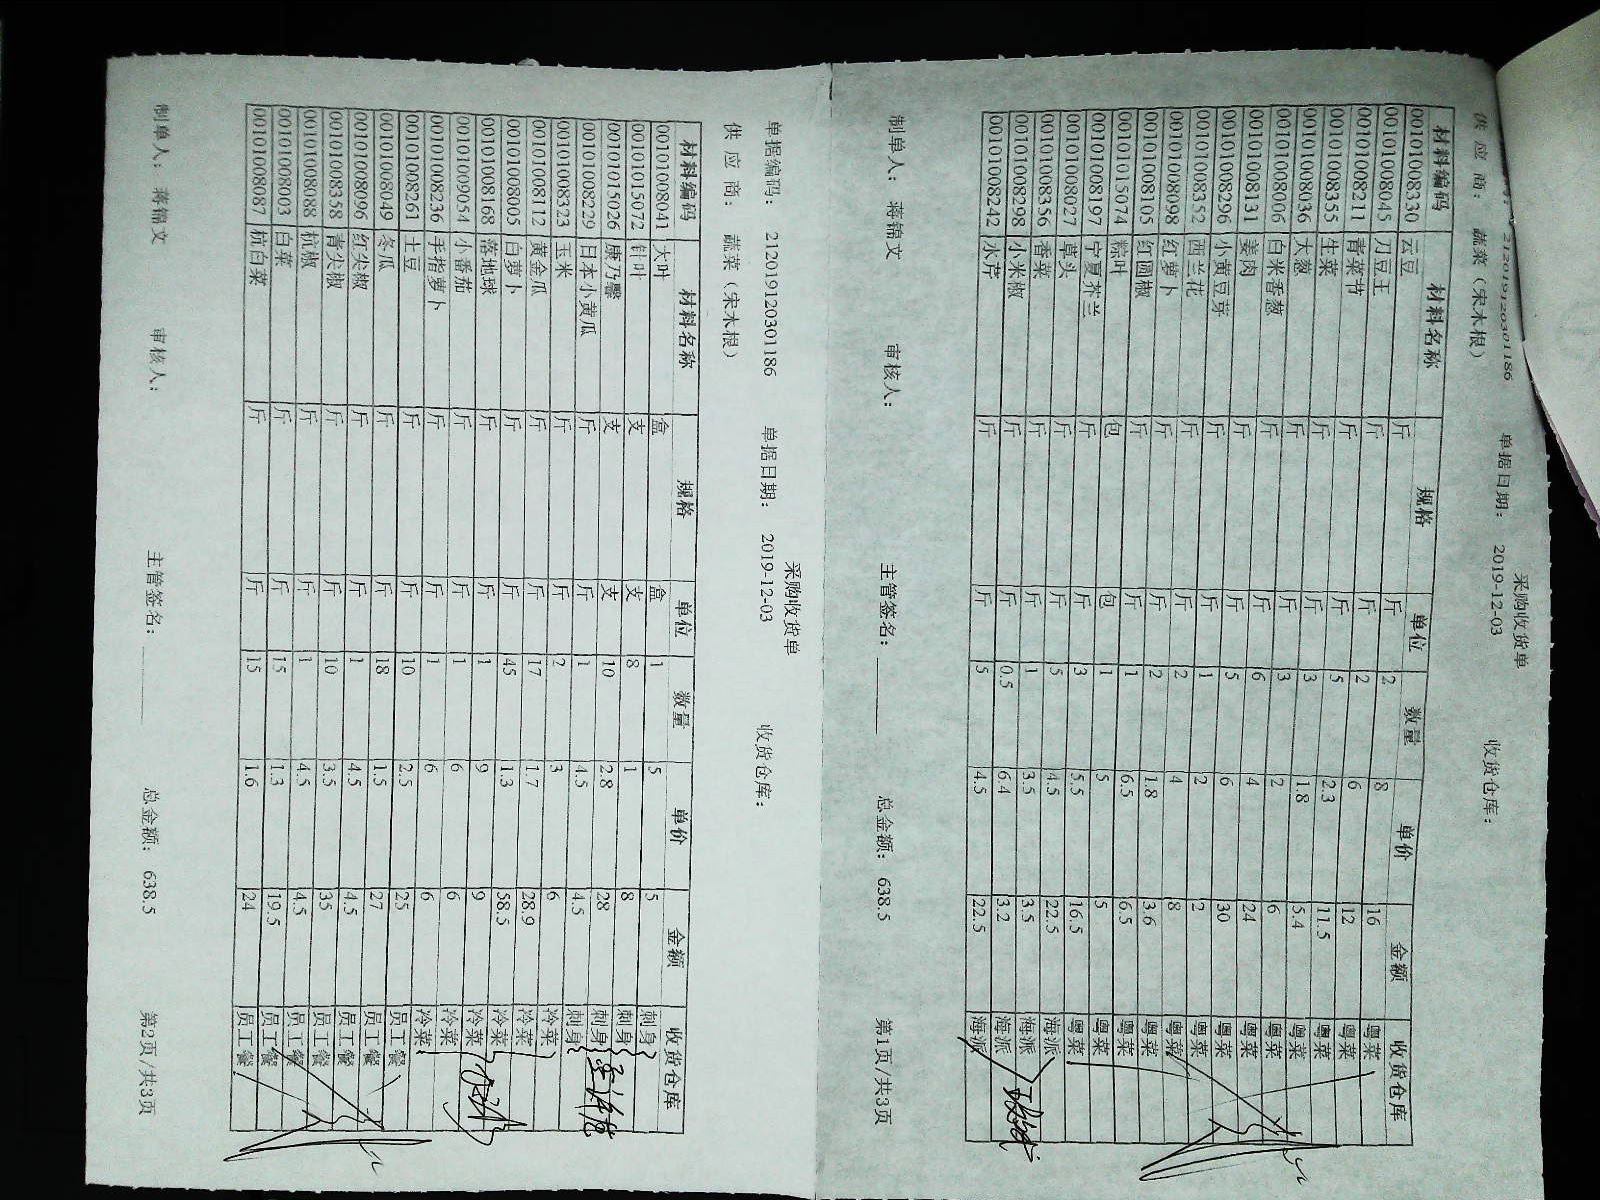 采购收货单
21201912030​1186 单据日期: 2019-12-03 收货仓库:
供 应 商: 蔬菜(宋木根)
材料编码 材料名称 规格 单位 数量 单价 金额 收货仓库
00101008330 云豆 斤 斤 2 8 16 粤菜
00101008045 刀豆王 斤 斤 2 6 12 粤菜
00101008211 青菜节 斤 斤 5 2.3 11.5 粤菜
00101008355 生菜 斤 斤 3 1.8 5.4 粤菜
00101008036 大葱 斤 斤 3 2 6 粤菜
00101008006 白米香葱 斤 斤 6 4 24 粤菜
00101008131 姜肉 斤 斤 5 6 30 粤菜
00101008296 小黄豆芽 斤 斤 1 2 2 粤菜
00101008352 西兰花 斤 斤 2 4 8 粤菜
00101008098 红萝卜 斤 斤 2 1.8 3.6 粤菜
00101008105 红圆椒 斤 斤 1 6.5 6.5 粤菜
00101015074 粽叶 包 包 1 5 5 粤菜
00101008197 宁夏芥兰 斤 斤 3 5.5 16.5 粤菜
00101008027 草头 斤 斤 5 4.5 22.5 海派
00101008356 香菜 斤 斤 1 3.5 3.5 海派
00101008298 小米椒 斤 斤 0.5 6.4 3.2 海派
00101008242 水芹 斤 斤 5 4.5 22.5 海派
制单人: 蒋锦文 审核人: 主管签名: 总金额: 638.5 第1页/共3页
采购收货单
单据编码: 212019120301186 单据日期: 2019-12-03 收货仓库:
供 应 商: 蔬菜(宋木根)
材料编码 材料名称 规格 单位 数量 单价 金额 收货仓库
00101008041 大叶 盒 盒 1 5 5 刺身
00101015072 针叶 支 支 8 1 8 刺身
00101015026 康乃馨 支 支 10 2.8 28 刺身
00101008229 日本小黄瓜 斤 斤 1 4.5 4.5 刺身
00101008323 玉米 斤 斤 2 3 6 冷菜
00101008112 黄金瓜 斤 斤 17 1.7 28.9 冷菜
00101008005 白萝卜 斤 斤 45 1.3 58.5 冷菜
00101008168 落地球 斤 斤 1 9 9 冷菜
00101009054 小番茄 斤 斤 1 6 6 冷菜
00101008236 手指萝卜 斤 斤 1 6 6 冷菜
00101008261 土豆 斤 斤 10 2.5 25 员工餐
00101008049 冬瓜 斤 斤 18 1.5 27 员工餐
00101008096 红尖椒 斤 斤 1 4.5 4.5 员工餐
00101008358 青尖椒 斤 斤 10 3.5 35 员工餐
00101008088 杭椒 斤 斤 1 4.5 4.5 员工餐
00101008003 白菜 斤 斤 15 1.3 19.5 员工餐
00101008087 杭白菜 斤 斤 15 1.6 24 员工餐
制单人: 蒋锦文 审核人: 主管签名: 总金额: 638.5 第2页/共3页